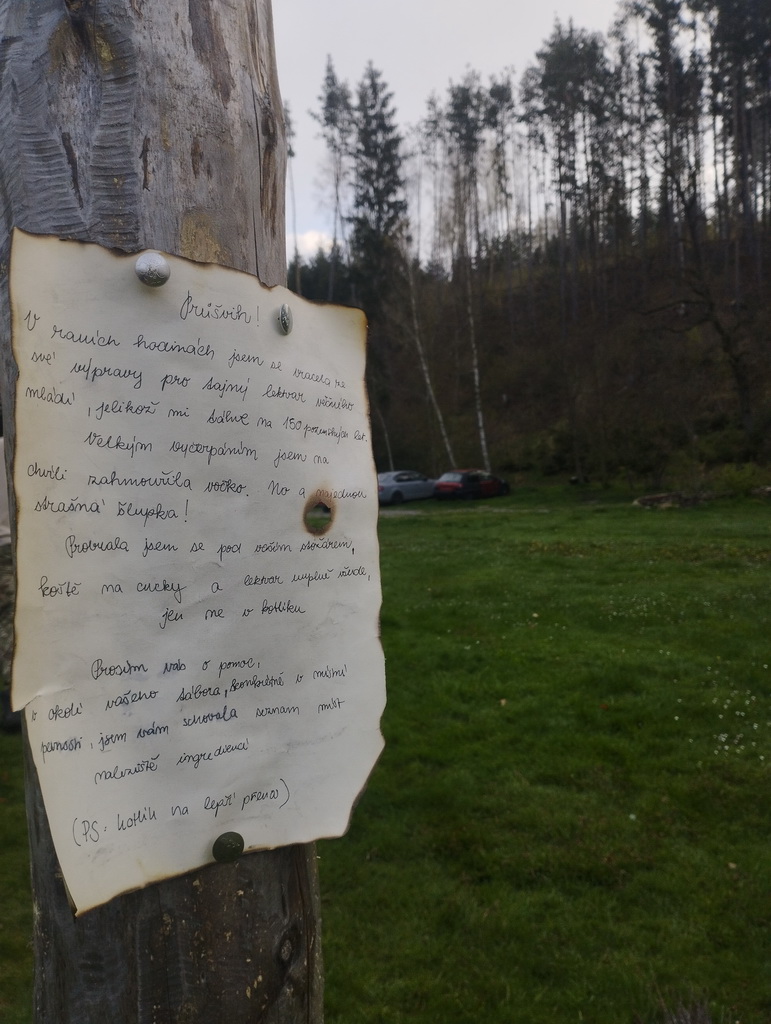 Průšvih!
V raních hodinách jsem se vracela ze
své výpravy pro tajný lektvar věčného
mládí, jelikož mi táhne na 150 pozemských let.
Velkým vyčerpáním jsem na
chvíli zahmouřila vočko. No a najednou
strašná šlupka!
Probrala jsem se pod vaším stožárem,
koště na cucky a lektvar uplně všude,
jen ne v kotlíku
Prosím vás o pomoc,
v okolí vašeho tábora, konkrétně v místní
, jsem vám schovala seznam míst
naleziště ingrediencí
(PS: kotlík na lepší přenos)